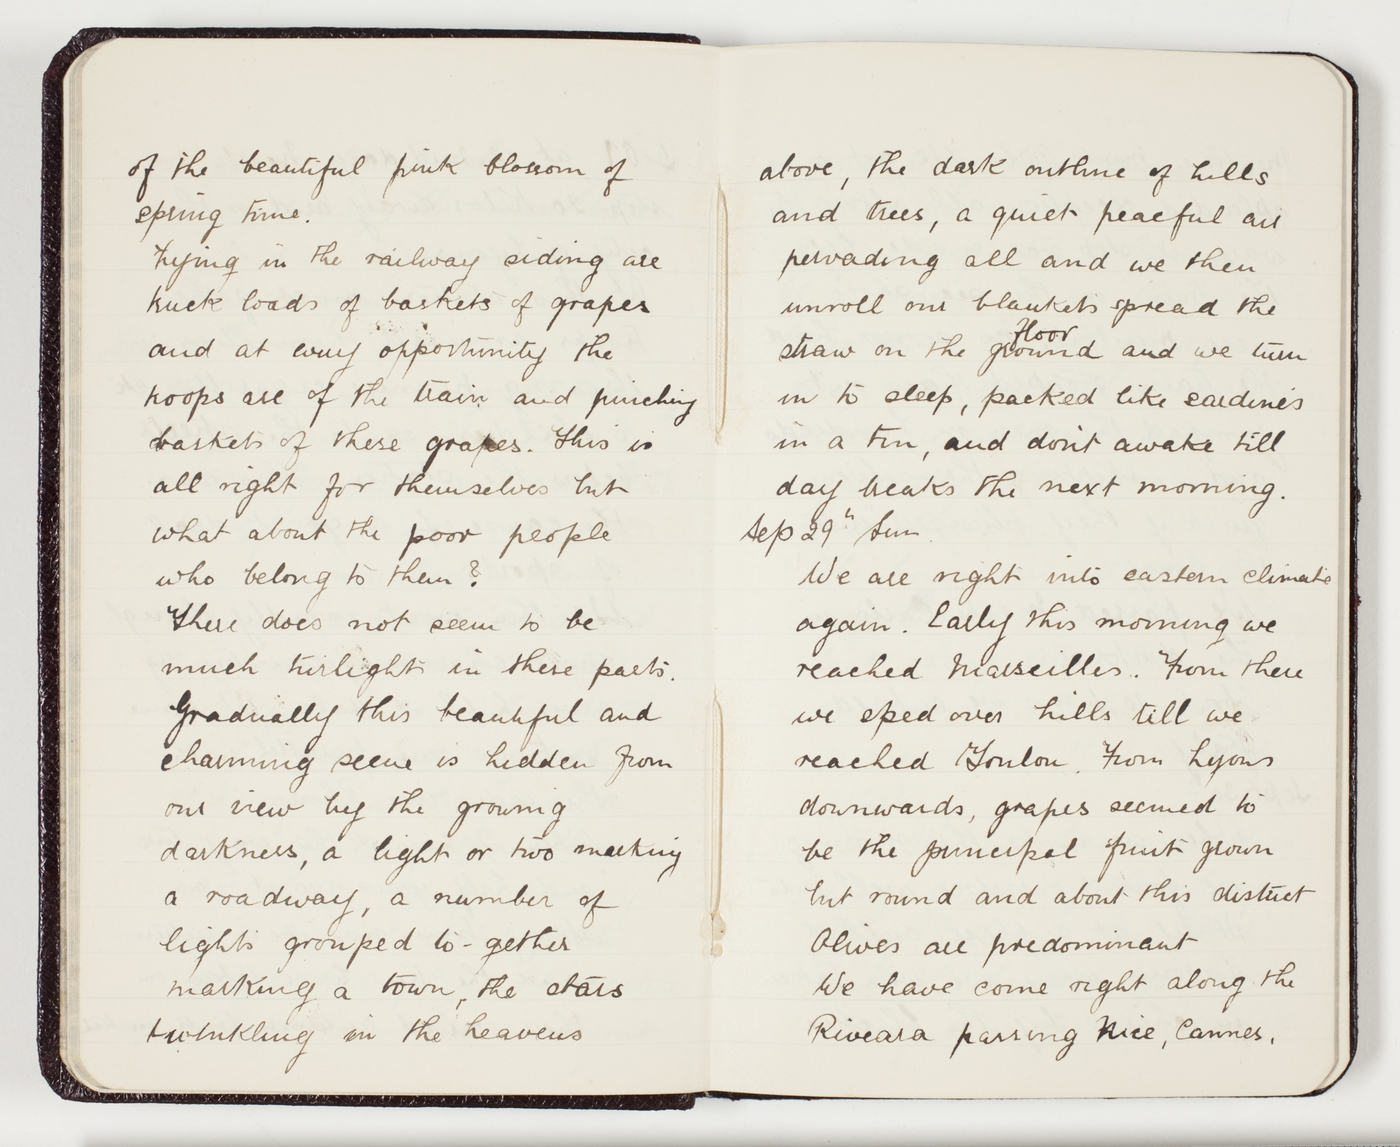 of the beautiful pink blossom of
spring time.
Lying in the railway siding are
truck loads of baskets of grapes
and at every opportunity the
troops are of the train and pinching
baskets of these grapes. This is
all right for themselves but
what about the poor people
who belong to them?
There does not seem to be
much twilight in these parts.
Gradually this beautiful and
charming scene is hidden from
our view by the growing
darkness, a light or two marking
a roadway, a number of
lights grouped to-gether
marking a town, the stars
twinkling in the heavens
above, the dark outline of hills
and trees, a quiet peaceful air
pervading all and we then
unroll our blankets spread the
floor
straw on the ground and we turn
in to sleep, packed like sardines
in a tin, and don't awake till
day breaks the next morning.
Sep 29th Sun.
We are right into eastern climate
again. Early this morning we
reached Marseilles. From there
we sped over hills till we
reached Toulon. From Lyons
downwards, grapes seemed to
be the principal fruit grown
but round and about this district
Olives are predominant
We have come right along the
Riveara passing Nice, Cannes,